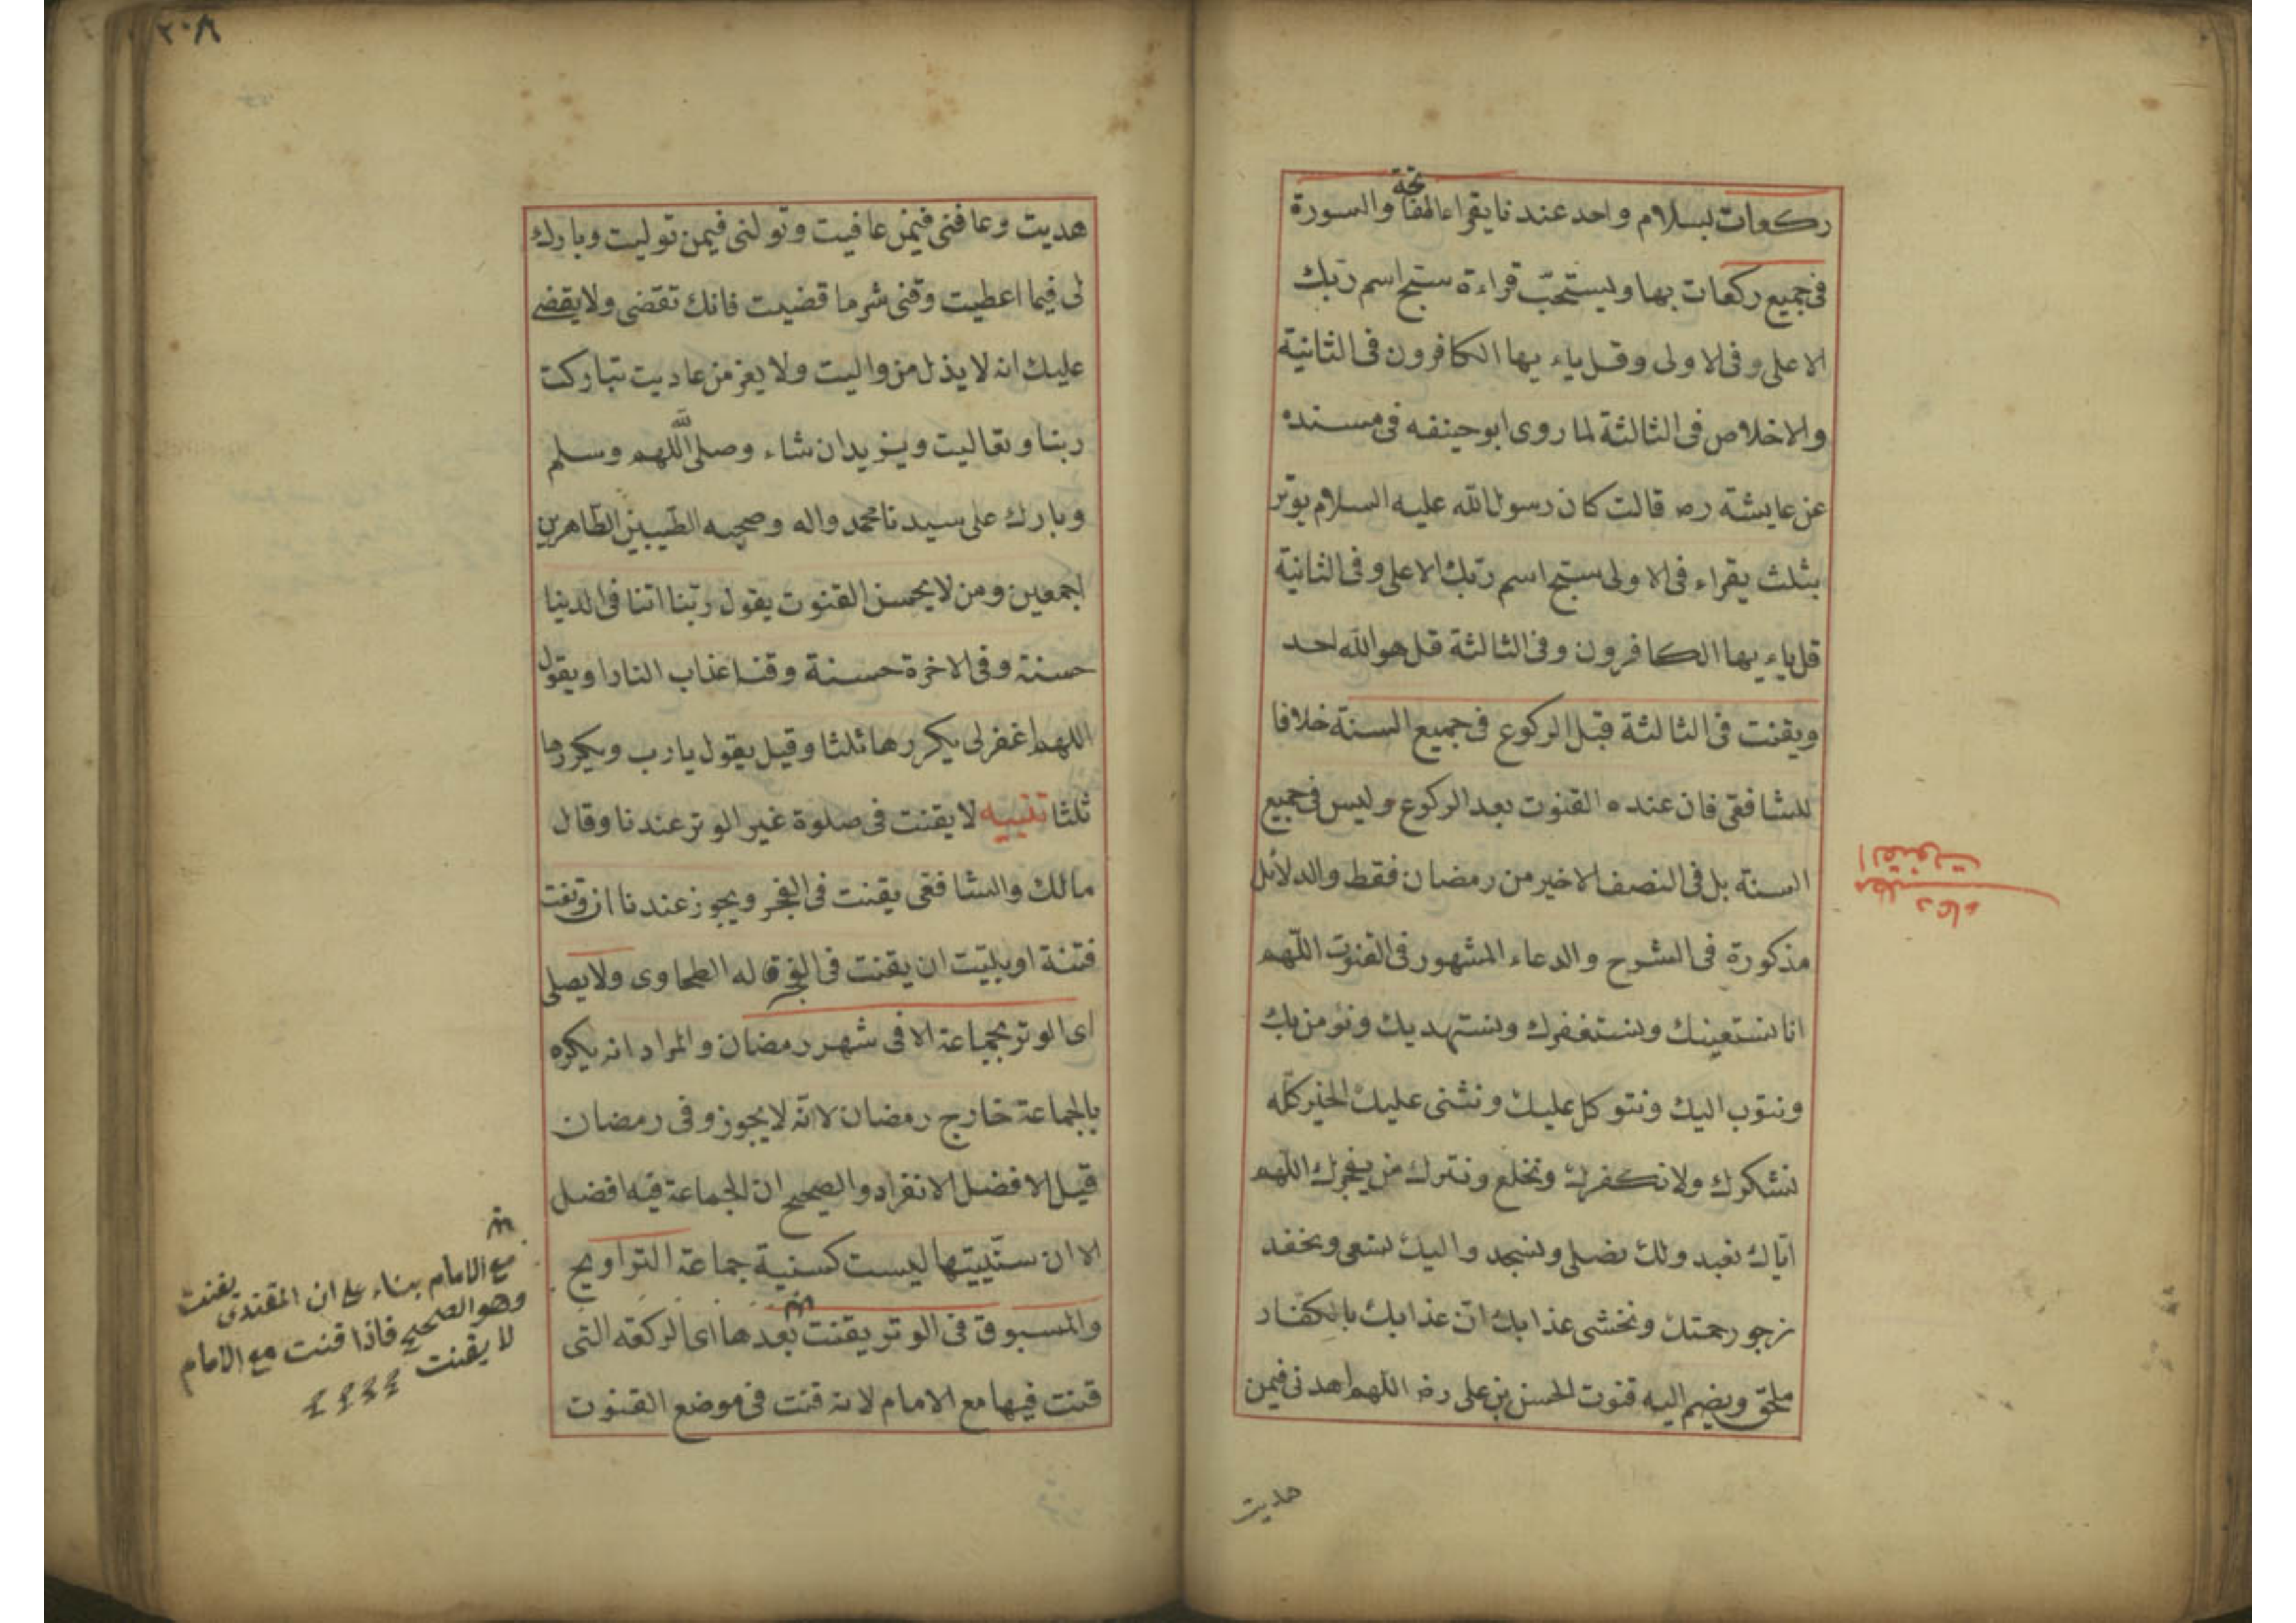 ركعات بسلام واحد عندنا يقراء الفاتحة والسورة
فى جميع ركعات بها ويستحبّ قراءة سبّح اسم ربّك
الاعلى و فى الاولى وقل ياء يها الكافرون فى الثانية
والاخلاص فى الثالثة لما روى ابو حينفه فى مسنده
عن عايشة رضه قالت كان رسول الله عليه السلام يوتر
بثلث يقراء فى الاولى سبّح اسم ربّك الاعلى وفى الثانية
قل ياء يها الكافرون وفى الثالثة قل هو الله احد
ويقنت فى الثالثة قبل الركوع فى جميع السنة خلافا
للشافقى فان عنده القنوت بعد الركوع وليس فى جميع
السنة بل فى النصف الاخير من رمضان فقط والدلائل
مذكورة فى الشرح والدعاء المشهور فى القنوت اللّهم
انا نستعينك ونستغفرك ونستهديك ونؤمن بك
ونتوب اليك ونتوكل عليك ونثنى عليك الخير كلّه
نشكرك ولا نكفرك ونخلع ونترك من يفجرك اللّهم
ايّاك نعبد ولك نصلى ونسجد واليك نسعى ونحفد
نرجو رحمتك ونخشى عذابك انّ عذابك بالكفار
ملحق ويضم اليه قنوت الحسن بن على رضه اللهم اهدنى فيمن
هديت
دعاء
القنوت
٢٠٨
هديت وعافنى فيمن عافيت وتولنى فيمن توليت وبارك
لى فيما اعطيت وقنى شر ما قضيت فانك تقضى ولا يقضى
عليك انه لا يذل من واليت ولا يعز من عاديت تباركت
ربنا وتعاليت ويزيد ان شاء وصلى اللّهم وسلم
وبارك على سيدنا محمد واله وصحبه الطّيبين الطّاهرين
اجمعين ومن لا يحسن القنوت يقول ربّنا اتنا فى الدنيا
حسنة وفى الاخرة حسنة وقنا عذاب النار او يقول
اللهم اغفر لى يكررها ثلثا وقيل يقول يا رب ويكررها
ثلثا تنبيه لا يقنت فى صلوة غير الوتر عندنا وقال
مالك والشافقى يقنت فى الفجر ويجوز عندنا ان وقعت
فتنة او بليّت ان يقنت فى الفجر قاله الطحاوى ولا يصلى
اى الوتر بجماعة الا فى شهر رمضان والمراد انه يكره
بالجماعة خارج رمضان لا انّه لا يجوز وفى رمضان
قيل الافضل الانفراد والصحيح ان الجماعة فيه افضل
الا ان سنّييتها ليست كسنية جماعة التراويح
والمسبوق فى الوتر يقنت بعدها اى الركعه التى
قنت فيها مع الامام لانه قنت فى موضع القنوت
مع الامام بناء على ان المقتدى يقنت
وهو الصحيح فاذا قنت مع الامام
لا يقنت